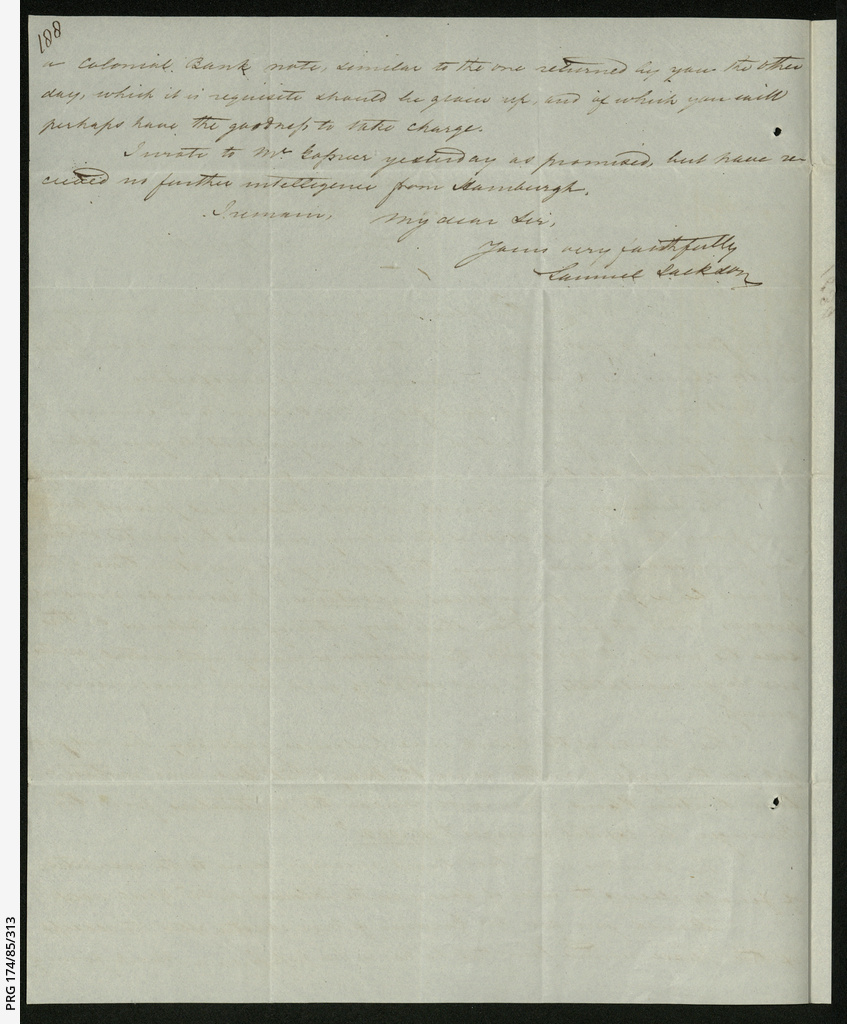 188
a Colonial Bank note, similar to the one returned by you the other
day, which it is requisite should be given up, and of which you will
perhaps have the goodness to take charge.
I wrote to Mr. yesterday as promised, but have re-
ceived no further intelligence from Hamburgh.
I remain, My dear Sir,
Yours very faithfully
Samuel Jackson
PRG 174/85/313